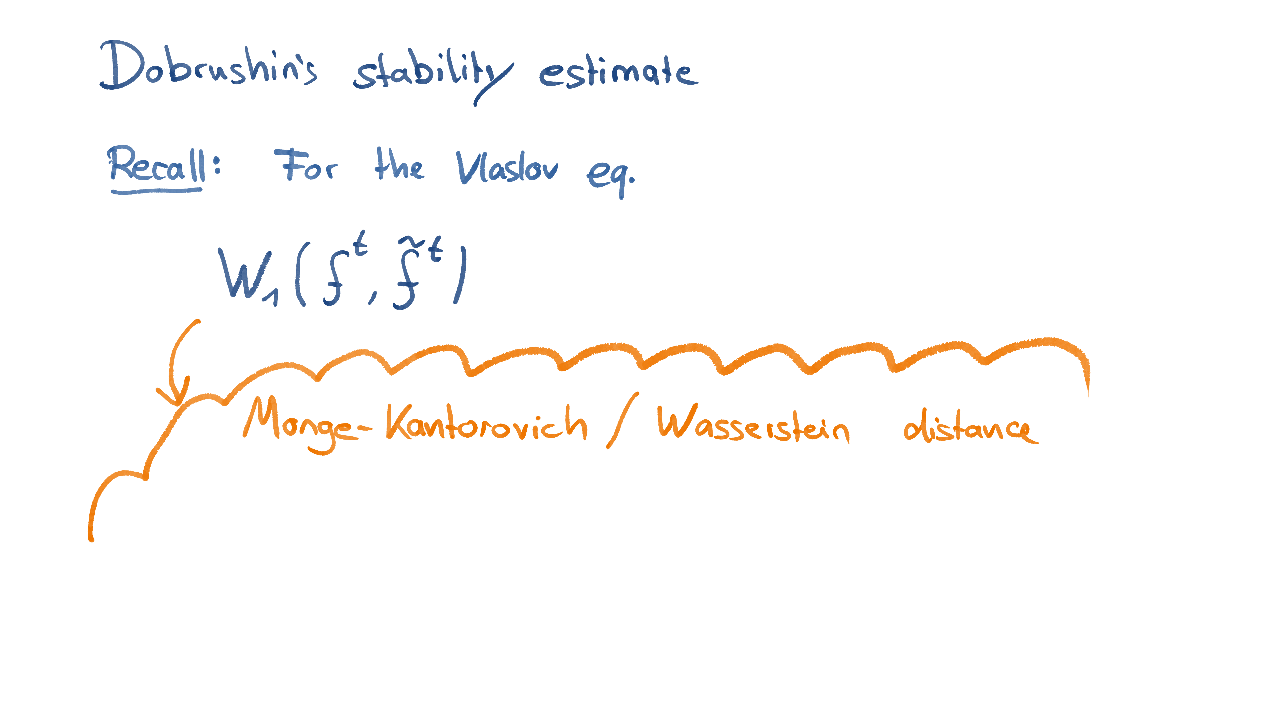 Dobrushin's stability estimate
Recall: For the Vlaslov eq.
W₁(fᵗ, f̃ᵗ)
Monge-Kantorovich / Wasserstein distance